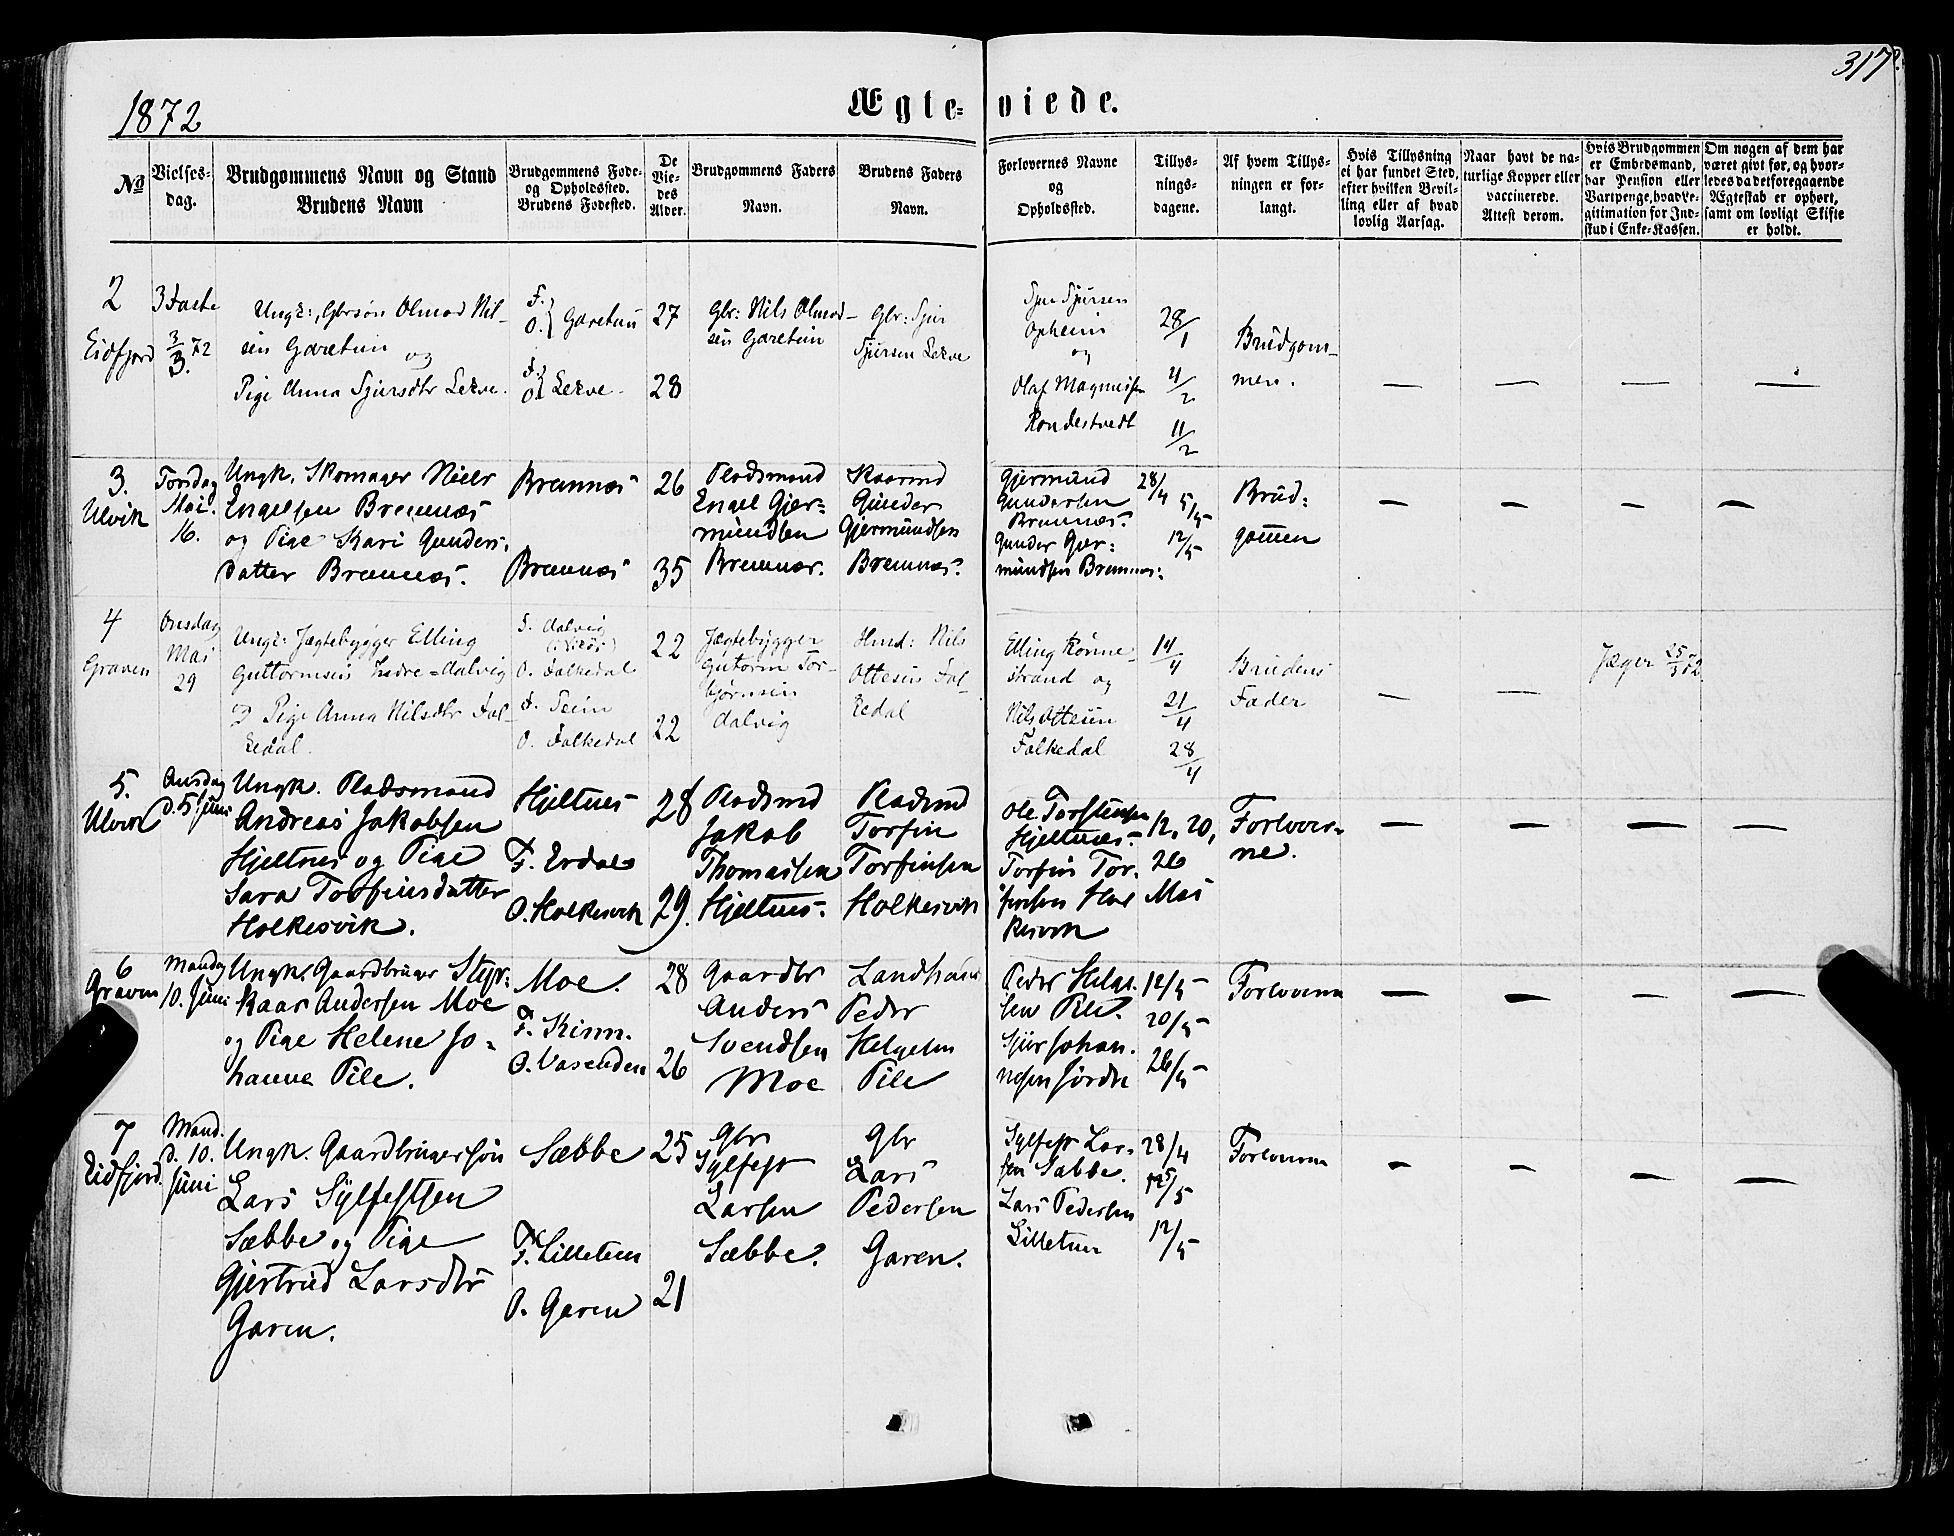 317
1872
Ægte-viede.
No
Vielses-
dag.
Brudgommens Navn og Stand
Brudens Navn
Brudgommens Føde-
og Opholdssted.
Brudens Fødested.
De
Vie-
des
Alder.
Brudgommens Faders
Navn.
Brudens Faders
Navn.
Forlovernes Navne
og
Opholdssted.
Tillys-
nings-
dagene.
Af hvem Tillys-
ningen er for-
langt.
Hvis Tillysning
ei har fundet Sted,
efter hvilken Bevil-
ling eller af hvad
lovlig Aarsag.
Naar havt de na-
turlige Kopper eller
vaccinerede.
Attest derom.
Hvis Brudgommen
er Embedsmand,
har Pension eller
Vartpenge, hvad Le-
gitimation for Ind-
skud i Enke-Kassen.
Om nogen af dem har
været gift før, og hvor-
ledes da det foregaaende
Ægteskab er ophørt,
samt om lovligt Skifte
er holdt.
2
Eidfjord
3 Faste
3/3. 72
Ungk:, Gbrsøn Olmod Nil-
sen Garetun
og
Pige Anna Sjursdtr Lekve.
F.
O. } Garetun
F.
O. } Lekve
27
28
Gbr: Nils Olmod-
sen Garetun
Gbr: Sjur
Sjursen Lekve
Sjur Sjursen
Opheim
og
Olaf Magnusen
Rondestvedt
28/1
4/2
11/2
Brudgom-
men.
— — — —
3.
Ulvik
Torsdag
Mai.
16.
Ungk. Skomager Niels
Engelsen Bremnæs
og Pige Kari Gunders-
datter Bremnæs.
Bremnæs
Bremnæs
26
35
Pladsmand
Engel Gjer-
mundsen
Bremnæs.
Husmd
Gunder
Gjermundsen
Bremnæs.
Gjermund
Gundersen
Bremnæs.
Gunder Gjer-
mundsen Bremnæs.
28/4 5/5
12/5
Brud-
gommen
— — — —
4
Graven
Onsdag
Mai
29
Ungk: Jægtebygger Elling
Guttormsen Indre-Aalvig
og Pige Anna Nilsdtr Fol-
kedal.
F. Aalvig
O. Folkedal
F. Seim
O. Folkedal
22
22
Jægtebygger
Gutorm Tor-
bjørnsen
Aalvig
Hmd: Nils
Ottesen Fol-
kedal
Elling Rønne-
strand og
Nils Ottesen
Folkedal
14/4
21/4
28/4
Brudens
Fader
— —
Jæger 25/3 72
5.
Ulvik
Onsdag
d. 5 Juni
Ungk. Pladsmand
Andreas Jakobsen
Hjeltnes og Pige
Sara Torfinsdatter
Holkesvik.
Hjeltnes
F. Erdal
O. Holkesvik
28
29.
Pladsmd
Jakob
Thomassen
Hjeltnes.
Pladsmd
Torfin
Torfinsen
Holkesvik
Ole Torstensen
Hjeltnæs.
Torfin Tor-
finsen Hol
kesvik
12, 20,
26
Mai
Forlover-
ne.
— — — —
6
Graven
Mandag
10. Juni
Ungk. Gaardbruger Styr-
kaar Andersen Moe
og Pige Helene Jo-
hanne Pile.
Moe.
F. Kinn.
O. Vasenden
28
26
Gaardbr
Anders
Svendsen
Moe
Landhand
Peder
Helgesen
Pile
Peder Helge-
sen Pile.
Sjur Johan-
nesen Jordre
12/5
20/5
26/5
Forloverne
— — — —
7
Eidfjord
Mand.
d. 10.
Juni
Ungk. Gaardbrugersøn
Lars Sylfestsen
Sæbbe og Pige
Gjertrud Larsdtr
Garen.
Sæbbe
F. Lilletun
O. Garen
25
21
Gbr
Sylfest
Larsen
Sæbbe.
Gbr
Lars
Pedersen
Garen.
Sylfest Lar-
sen Sæbbe.
Lars Pedersen
Lilletun
28/4
5/5
12/5
Forloverne
— — — —